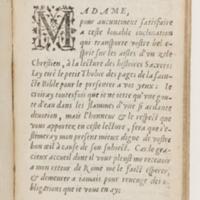 MADAME,
pour aucunement satisfaire
a ceste louable inclination
qui transporte vostre bel e-
sprit sur les aisles d'un zele
Chrestien, à la lecture des histoires Sacrees:
i'ay tiré le petit Theatre des pages de la sainc-
te Bible pour le presenter a vos yeux: Ie
croiray toutesfois que ie ne iette qu'une gout-
te d'eau dans les flammes d'une si ardante
deuotion, mais l'honneur & le respect que
vous apportez en ceste lecture, sera que i'e-
stimeray mon present mieux digne de vostre
bon œil à cause de son subiect. Car le gra-
cieux accueil dont il vous pleust me receuoir
a mon retour de Rome me le faict esperer,
& demeurer a iamais pour reuenge des o-
bligations que ie vous en ay: